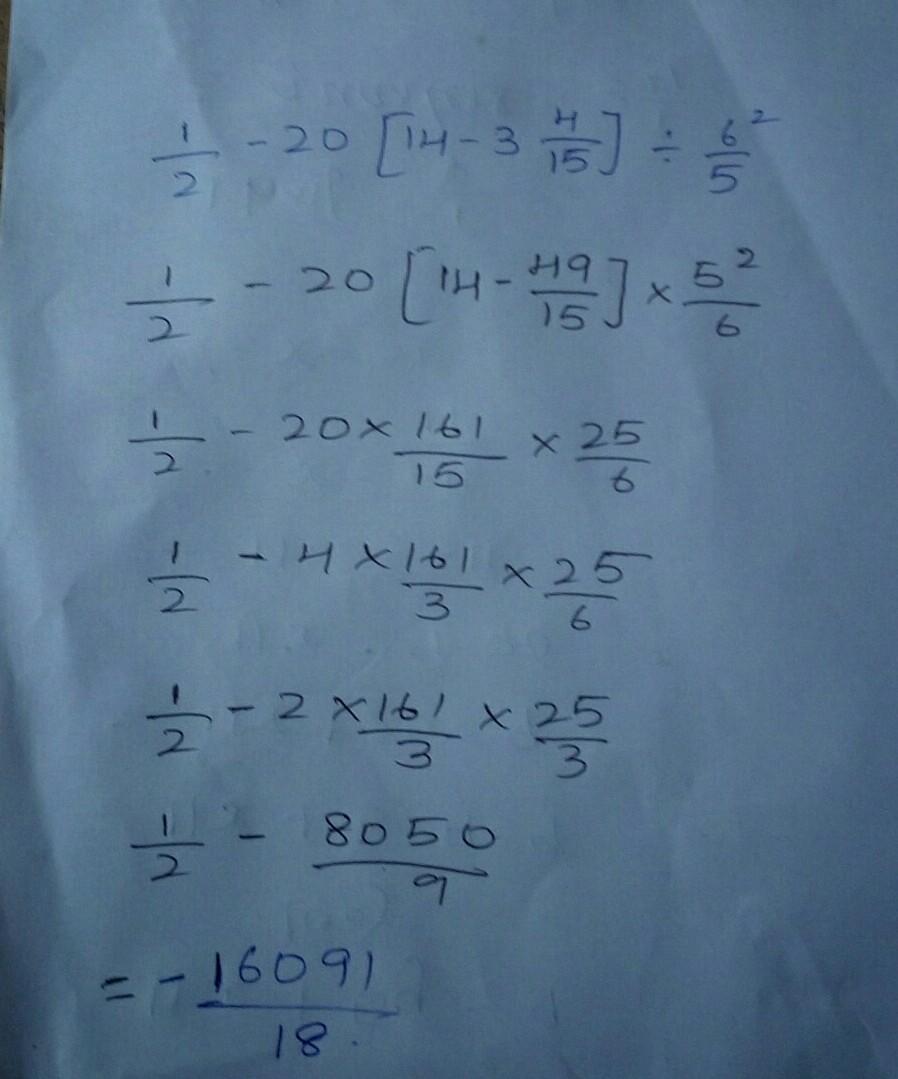 1/2 - 20 [14 - 3 4/15] ÷ 6²/5
1/2 - 20 [14 - 49/15] × 5²/6
1/2 - 20 × 161/15 × 25/6
1/2 - 4 × 161/3 × 25/6
1/2 - 2 × 161/3 × 25/3
1/2 - 8050/9
= - 16091/18.